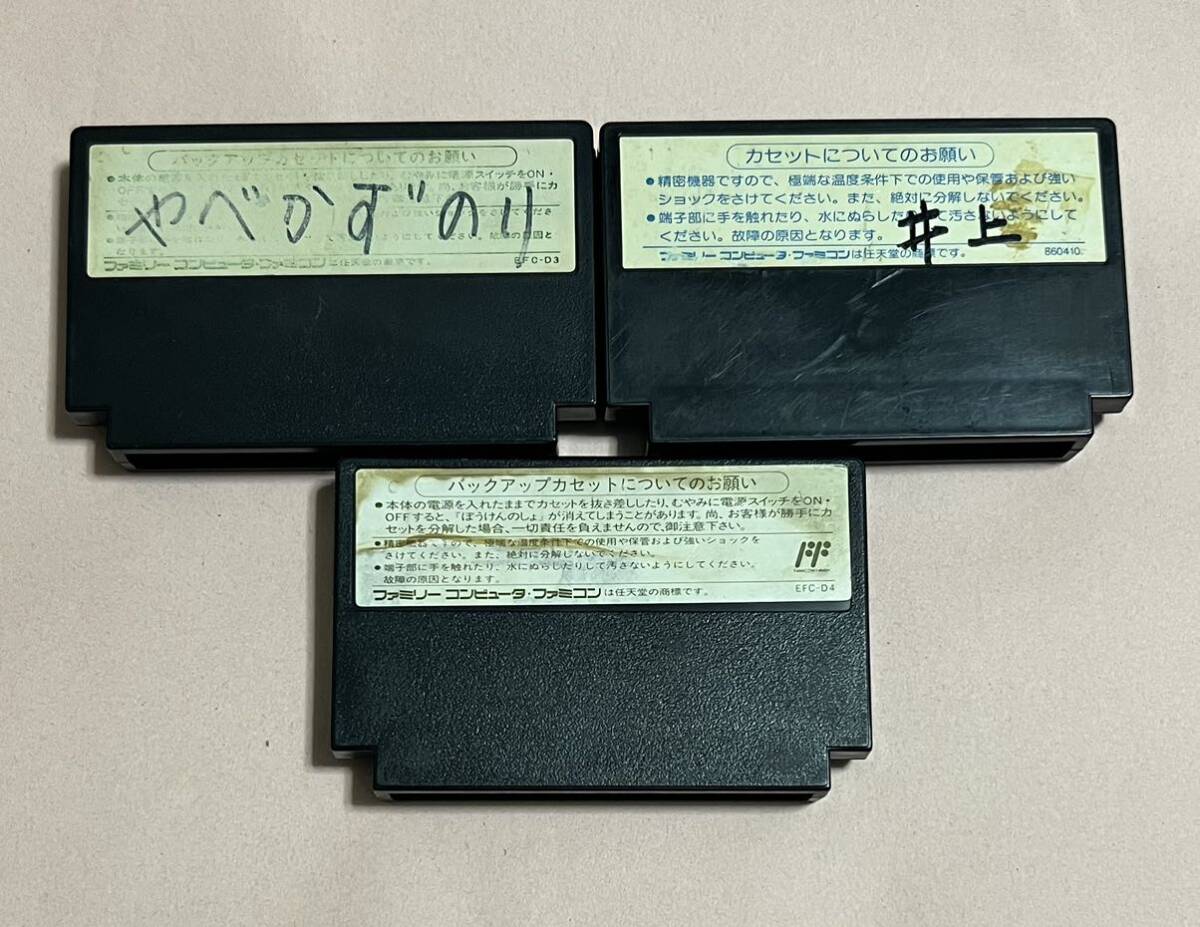 バックアップカセットについてのお願い
●本体の電源を入れ
むやみに電源スイッチをON・
OFF
尚、お客様が勝手にカ
やべかずのり
なります。
ファミリー コンピュータ・ファミコンは任天堂の商標です。
EFC-D3
カセットについてのお願い
●精密機器ですので、極端な温度条件下での使用や保管および強い
ショックをさけてください。また、絶対に分解しないでください。
●端子部に手を触れたり、水にぬらしたりして汚さないようにして
ください。故障の原因となります。
井上
ファミリー コンピュータ・ファミコンは任天堂の商標です。
860410
バックアップカセットについてのお願い
●本体の電源を入れたままでカセットを抜き差ししたり、むやみに電源スイッチをON・
OFFすると、「ぼうけんのしょ」が消えてしまうことがあります。尚、お客様が勝手にカ
セットを分解した場合、一切責任を負えませんので、御注意下さい。
●精密機器ですので、極端な温度条件下での使用や保管および強いショックを
さけてください。また、絶対に分解しないでください。
●端子部に手を触れたり、水にぬらしたりして汚さないようにしてください。
故障の原因となります。
ファミリー コンピュータ・ファミコンは任天堂の商標です。
EFC-D4